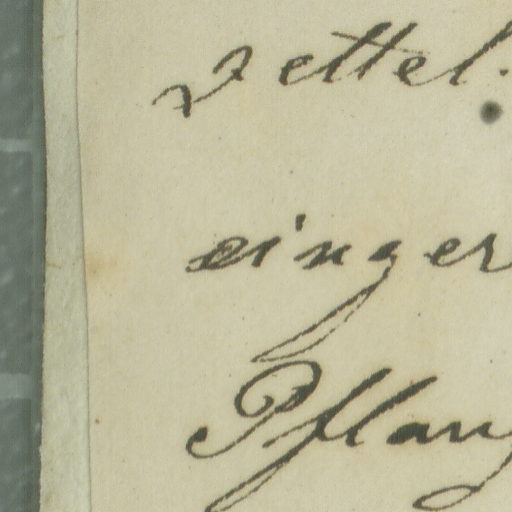 Zettel.
einger
Pflanz